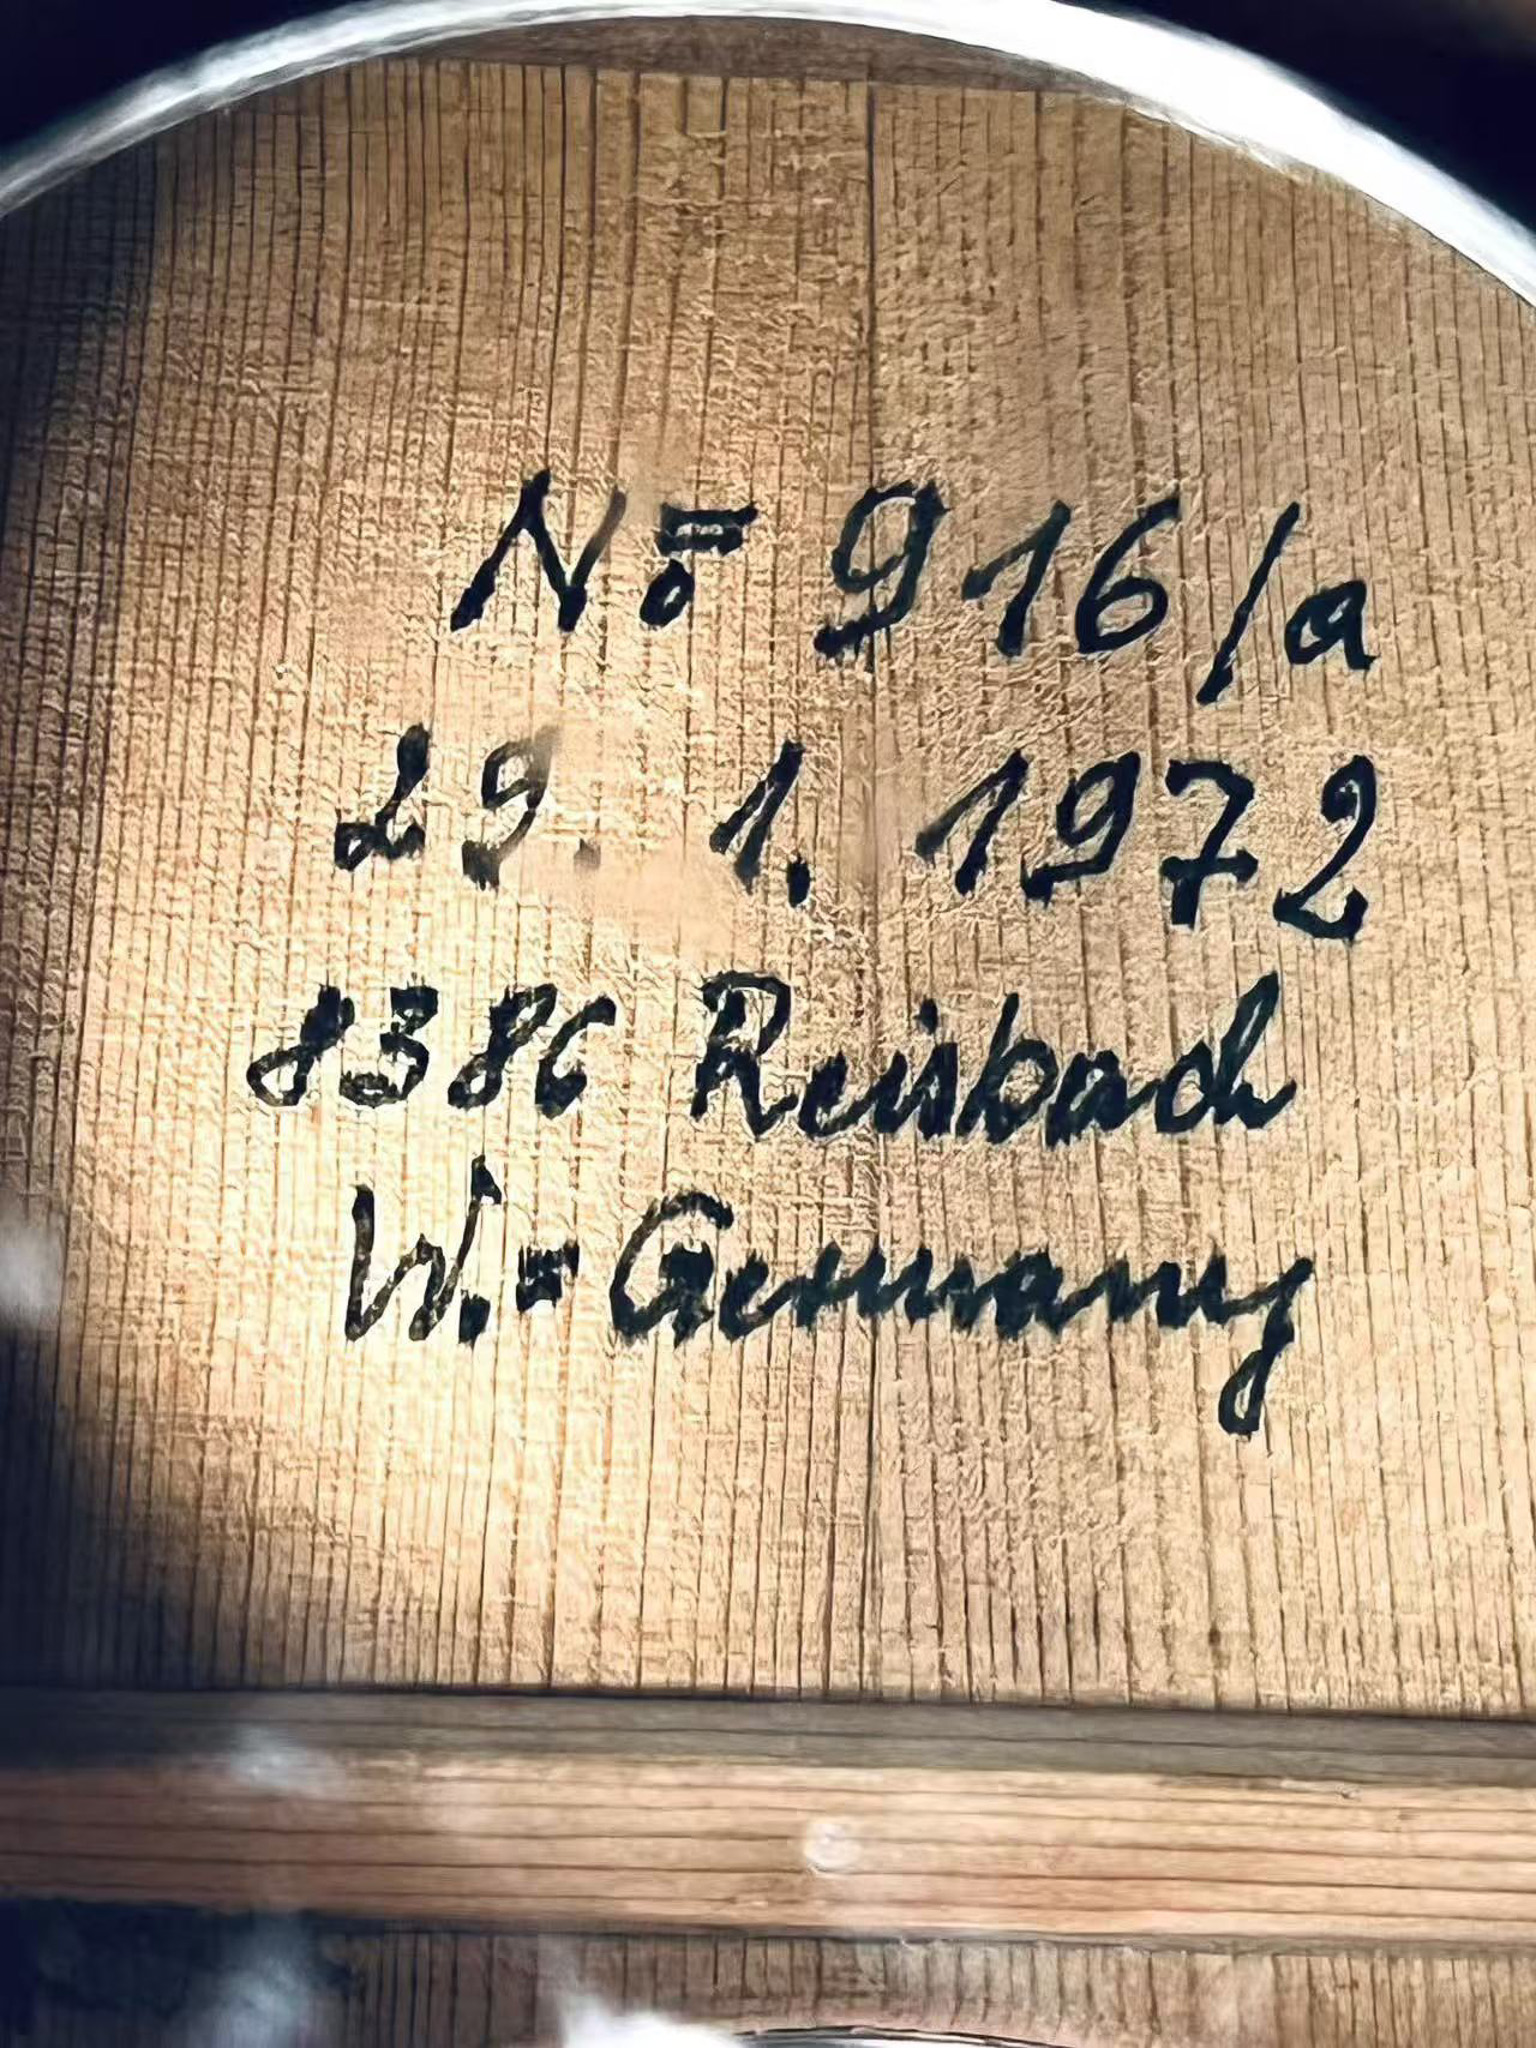 No 916/a
29. 1. 1972
8386 Reisbach
W.-Germany